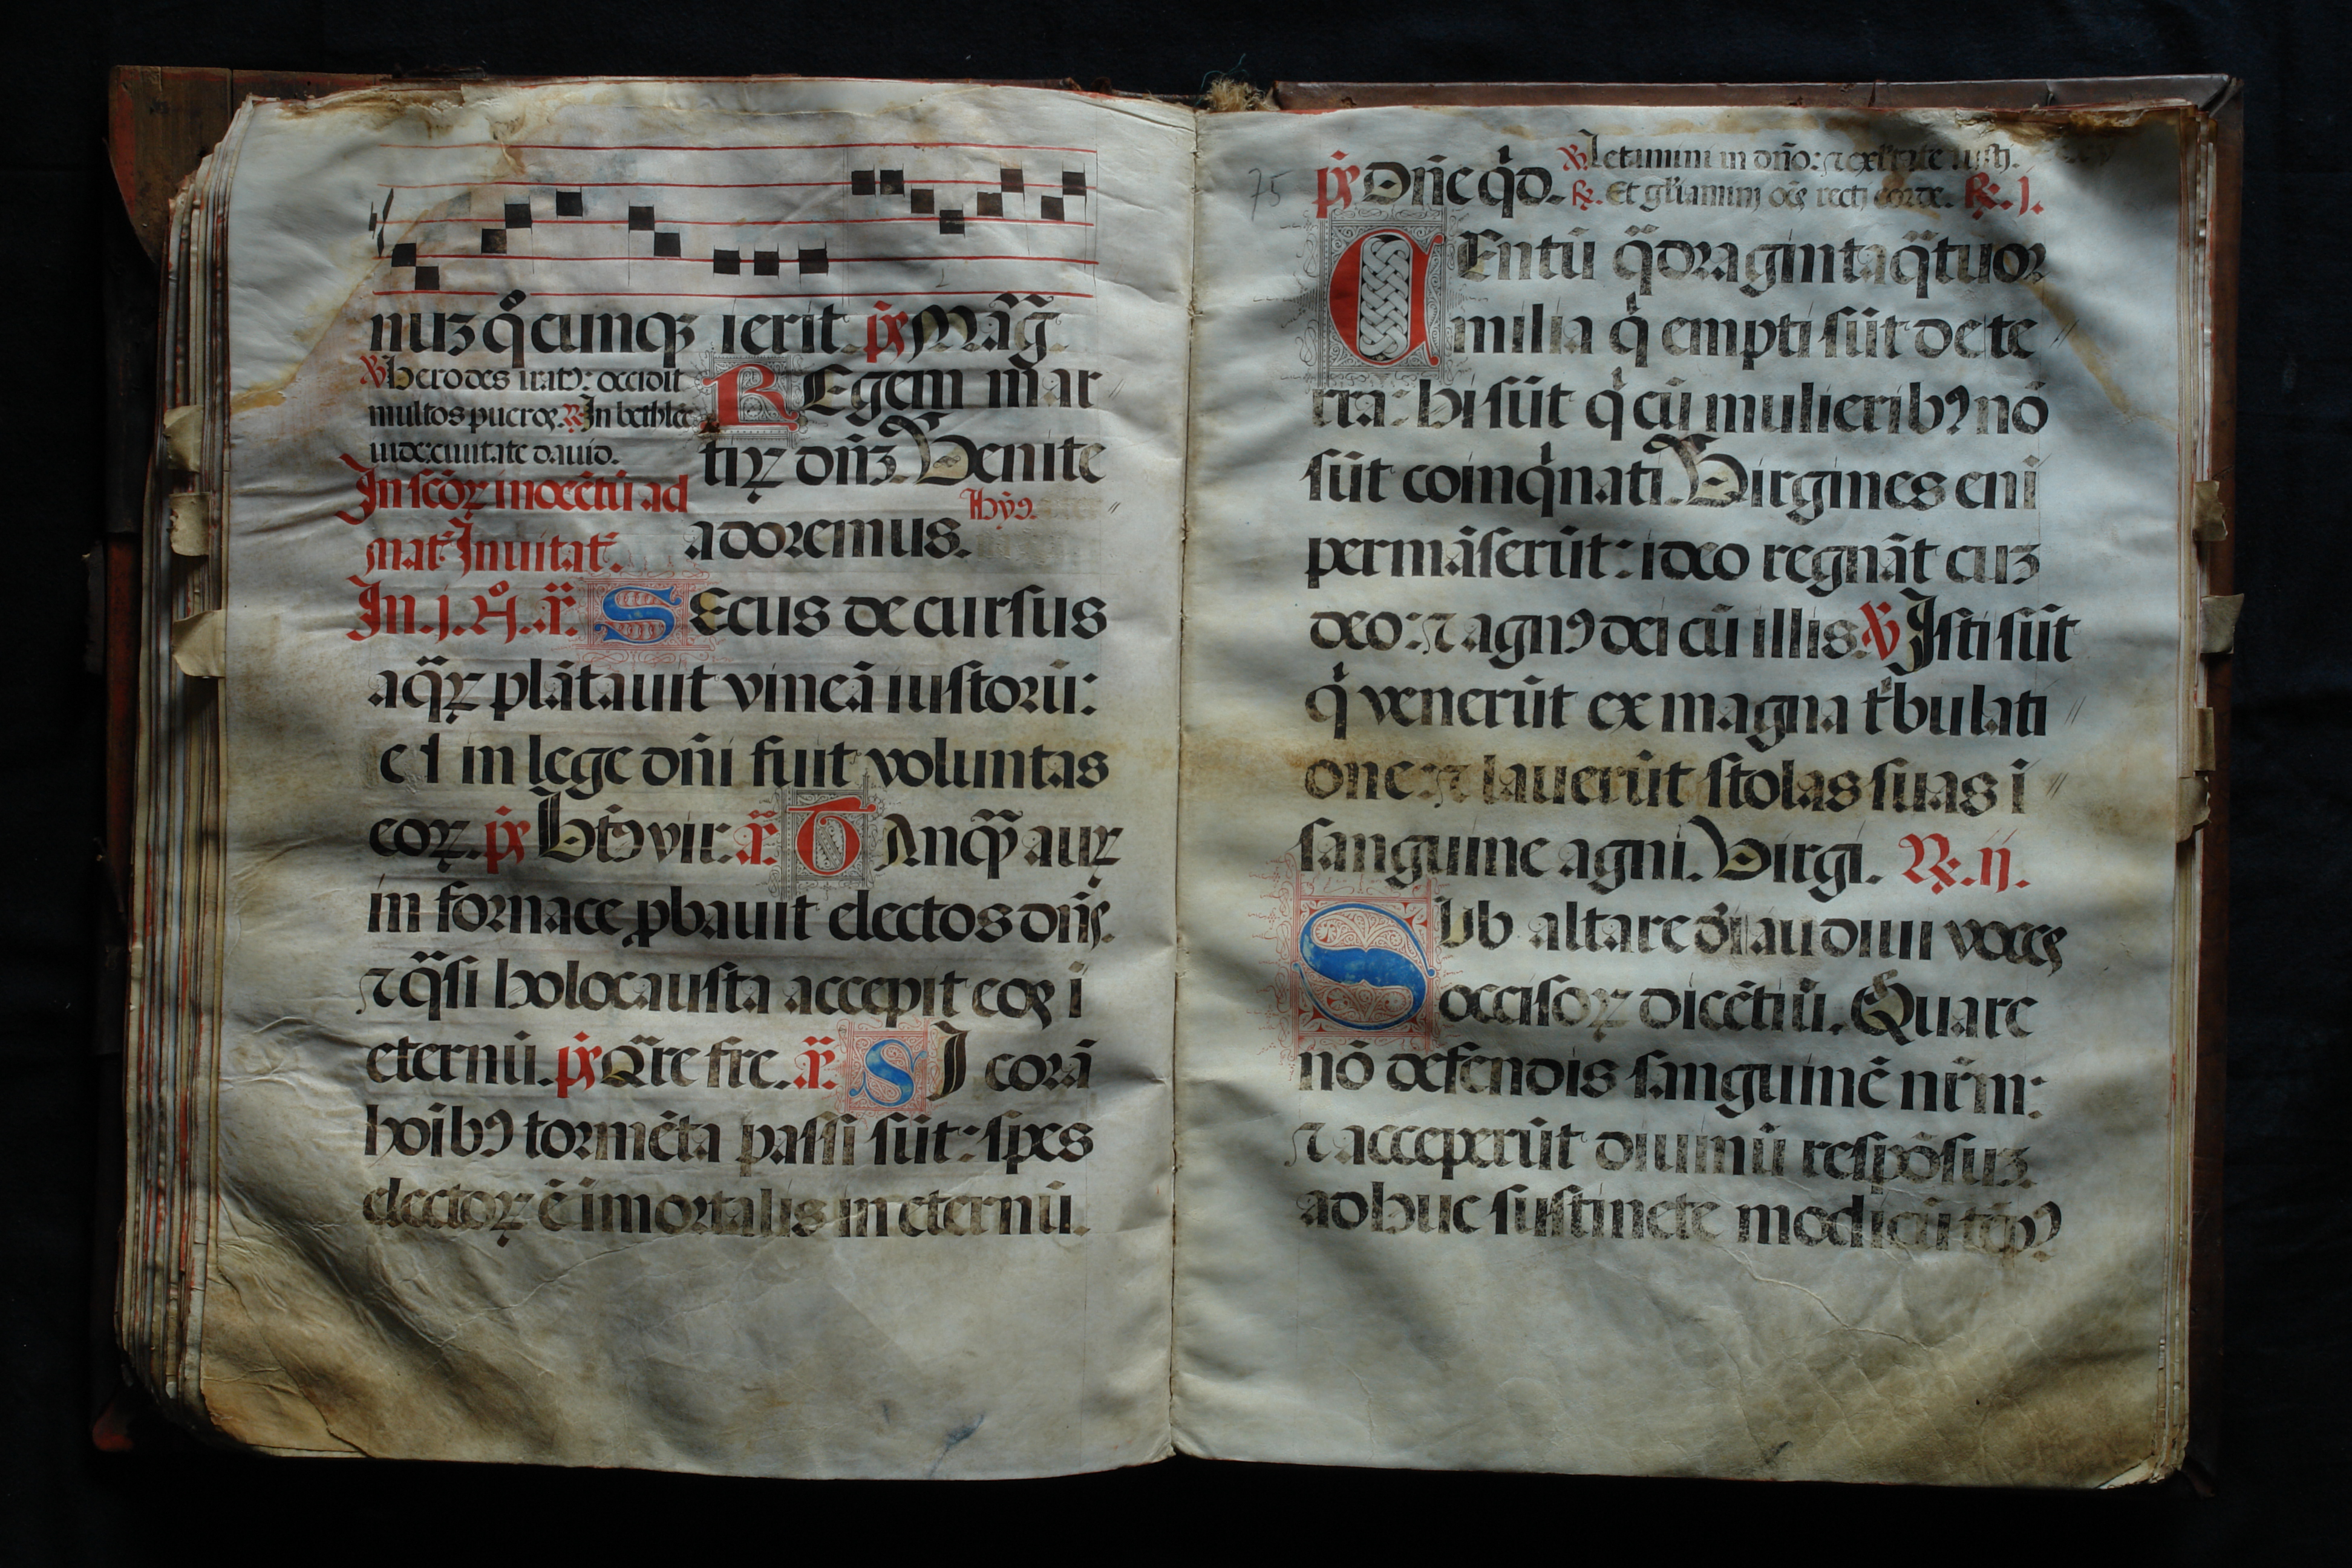 nuz q̊cunqȝ ierit p̄s Mag̃.
℣ Herodes irat⁹: occidit
multos pueroꝝ. ℟ In bethleē
iude: ciuitate dauid.
REgem mar
tiꝝ dn̄ȝ. Venite
adoremus. Hỹ⁹.
In scōꝝ inocētū ad
mat̄. Inuitat̄.
In .j. N̊. a͞. SEcus decursus
aq̄ꝝ plātauit vineā iustorū:
et in lege dn̄i fuit voluntas
eoꝝ. p̄s Bt̄⁹ vir. a͞. TAnqȝ̄ auꝝ
in fornace ꝓbauit electos dn̄s.
⁊ q̄si holocausta accepit eoꝝ i
eternū. p̄s Q̄re fre. a͞. SI corā
hoīb⁹ tormēta passi sūt: spes
electoꝝ ē īmortalis in eternū.
75
p̄s Dn̄e q̇d. ℣ Letamini in dn̄o: ⁊ exl̄tate iusti.
℟. Et gl̄iamini oēs recti corde. ℟. j.
CEntū q̄dragintaq̄tuor
milia q̇ empti sūt de te
rra: hi sūt q̇ cū mulierib⁹ nō
sūt coinq̇nati. Virgines eni
permāserūt: ideo regnāt cuz
deo: ⁊ agn⁹ dei cū illis. ℣ Isti sūt
q̇ venerūt ex magna t̍bulati
one: ⁊ lauerūt stolas suas i
sanguine agni. Virgi. ℟. ij.
SUb altare dei audiui voces
occisoꝝ dicētiū. Quare
nō defendis sanguinē nr̄m:
⁊ acceperūt diuinū respōsuz.
adhuc sustinete modicū tēp⁹